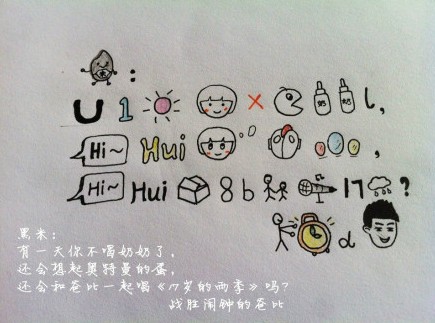 :
U 1 × 奶 奶 l,
Hi~ Hui ,
Hi~ Hui 8 b 17 ?
d
黑米：
有一天你不喝奶奶了，
还会想起奥特曼的蛋，
还会和爸比一起喝《17岁的雨季》吗？
战胜闹钟的爸比